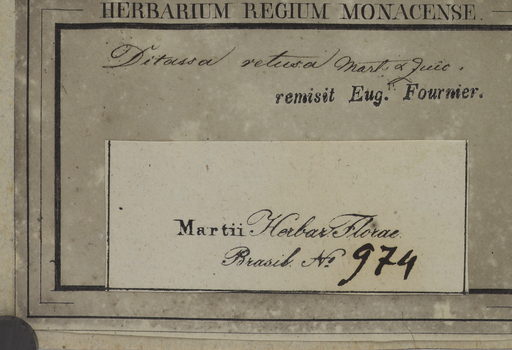 HERBARIUM REGIUM MONACENSE.
Ditassa retusa Mart. & Zucc.
remisit Eug. Fournier.
Martii Herbar. Florae
Brasil. No 974